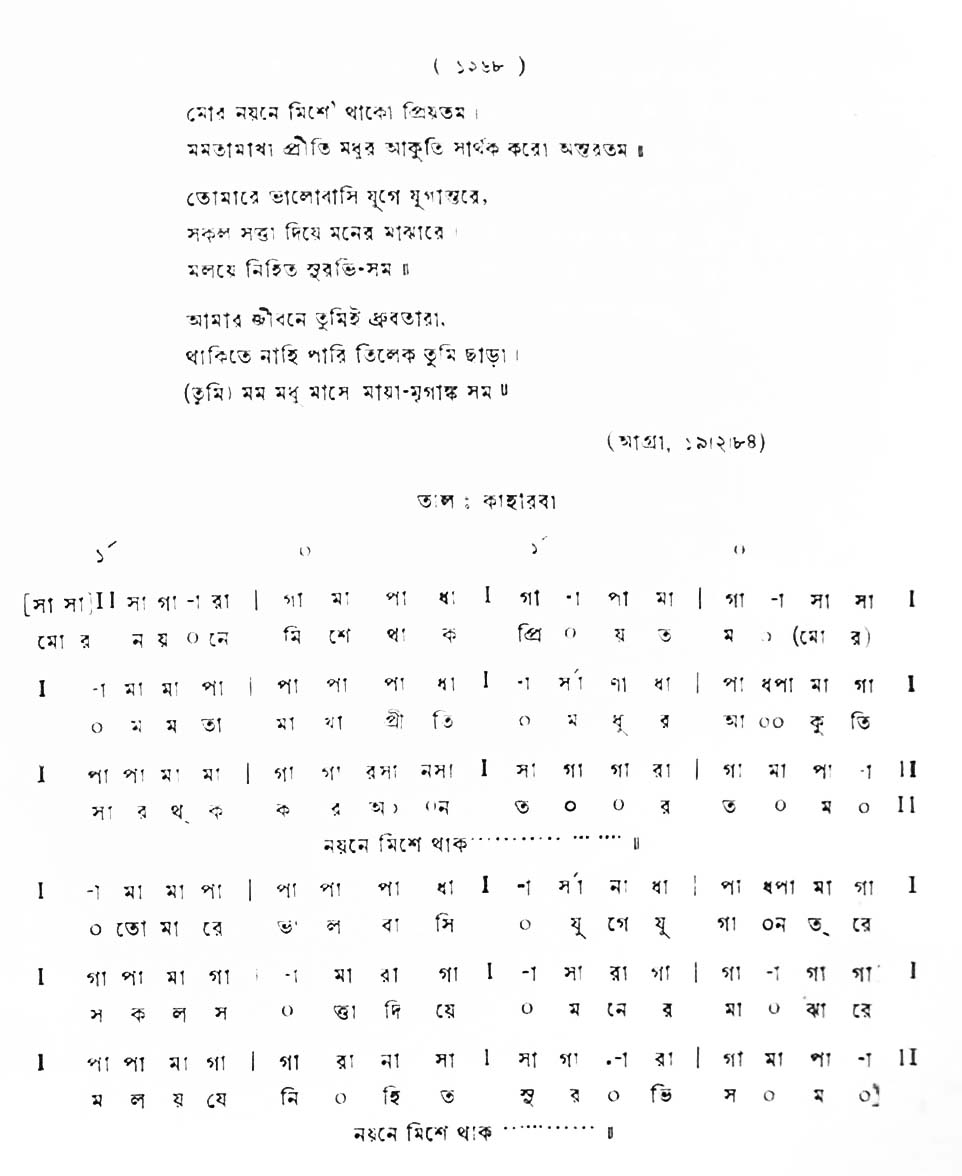 ( ১২৬৮ )
মোর নয়নে মিশে' থাকো প্রিয়তম ।
মমতামাখা প্রীতি মধুর আকুতি সার্থক করো অন্তরতম ॥
তোমারে ভালোবাসি যুগে যুগান্তরে,
সকল সত্তা দিয়ে মনের মাঝারে ।
মলয়ে নিহিত সুরভি-সম ॥
আমার জীবনে তুমিই ধ্রুবতারা,
থাকিতে নাহি পারি তিলেক তুমি ছাড়া ।
(তুমি) মম মধু মাসে মায়া-মৃগাঙ্ক সম ॥
(আগ্রা, ১৯।২।৮৪)
তাল : কাহারবা
১´ ০ ১´ ০
[সা সা]II সা গা -া রা | গা মা পা ধা I গা -া পা মা | গা -া সা সা I
মো র ন য় ০ নে মি শে থা ক প্রি ০ য় ত ম ০ (মো র)
I -া মা মা পা | পা পা পা ধা I -া র্সা ণা ধা | পা ধপা মা গা I
০ ম ম তা মা খা প্রী তি ০ ম ধু র আ ০০ কু তি
I পা পা মা মা | গা গা রসা নসা I সা গা গা রা | গা মা পা -া II
সা র থ্ ক ক র অ০ ০ন ত ০ ০ র ত ০ ম ০ II
নয়নে মিশে থাক ..................... ॥
I -া মা মা পা | পা পা পা ধা I -া র্সা না ধা | পা ধপা মা গা I
০ তো মা রে ভা ল বা সি ০ যু গে যু গা ০ন ত্ রে
I গা পা মা গা | -া মা রা গা I -া সা রা গা | গা -া গা গা I
স ক ল স ০ ত্তা দি য়ে ০ ম নে র মা ০ ঝা রে
I পা পা মা গা | গা রা না সা I সা গা -া রা | গা মা পা -া II
ম ল য় যে নি ০ হি ত সু র ০ ভি স ০ ম ০]
নয়নে মিশে থাক ............ ॥